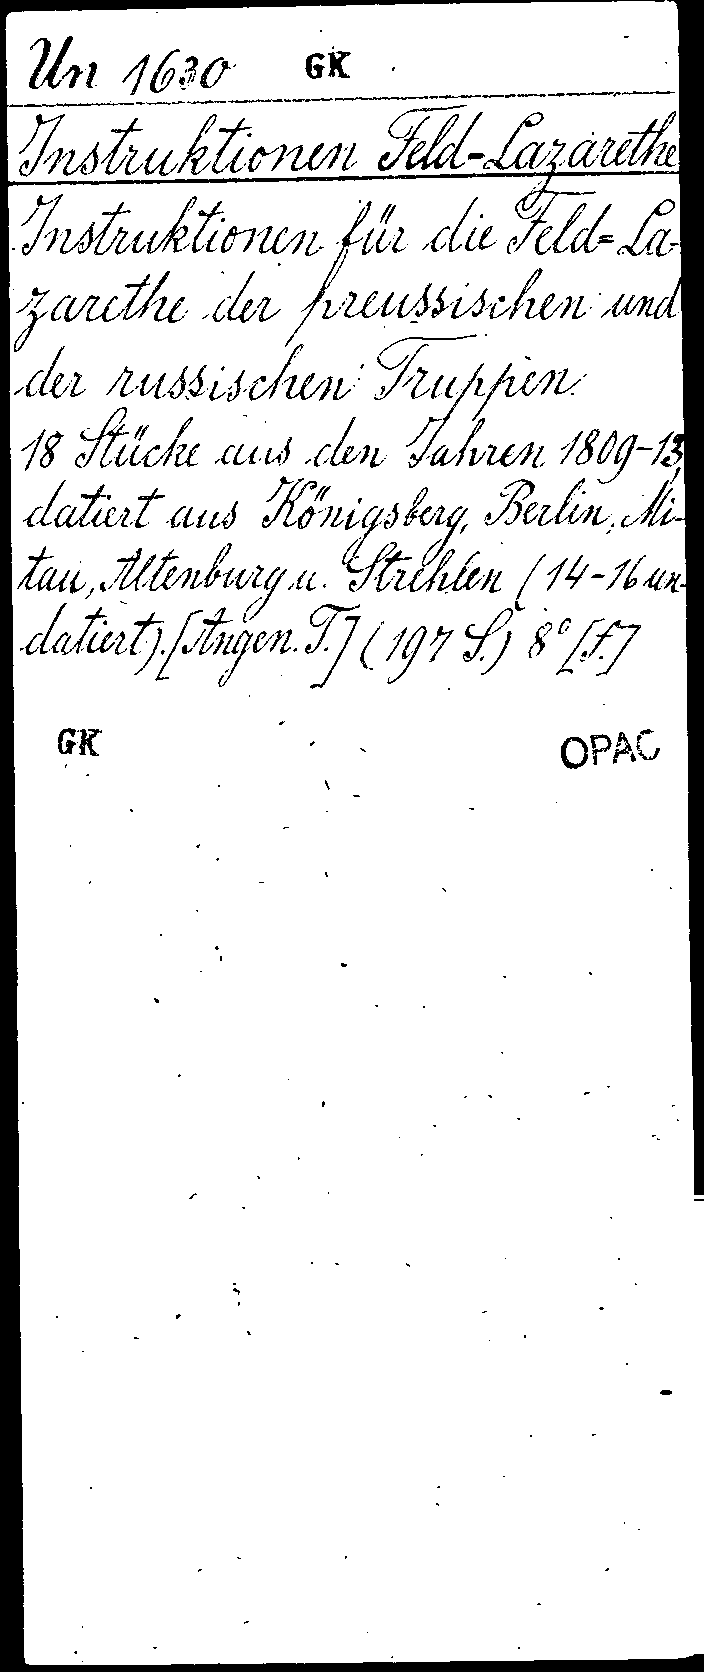 Un 1630 GK
Instruktionen Feld-Lazarethe
Instruktionen für die Feld=La-
zarethe der preussischen und
der russischen Truppen.
18 Stücke aus den Jahren 1809-13,
datiert aus Königsberg, Berlin, Mi-
tau, Altenburg u. Strehlen (14-16 un-
datiert). [Angen. T.] (197 S.) 8° [f.]
GK OPAC